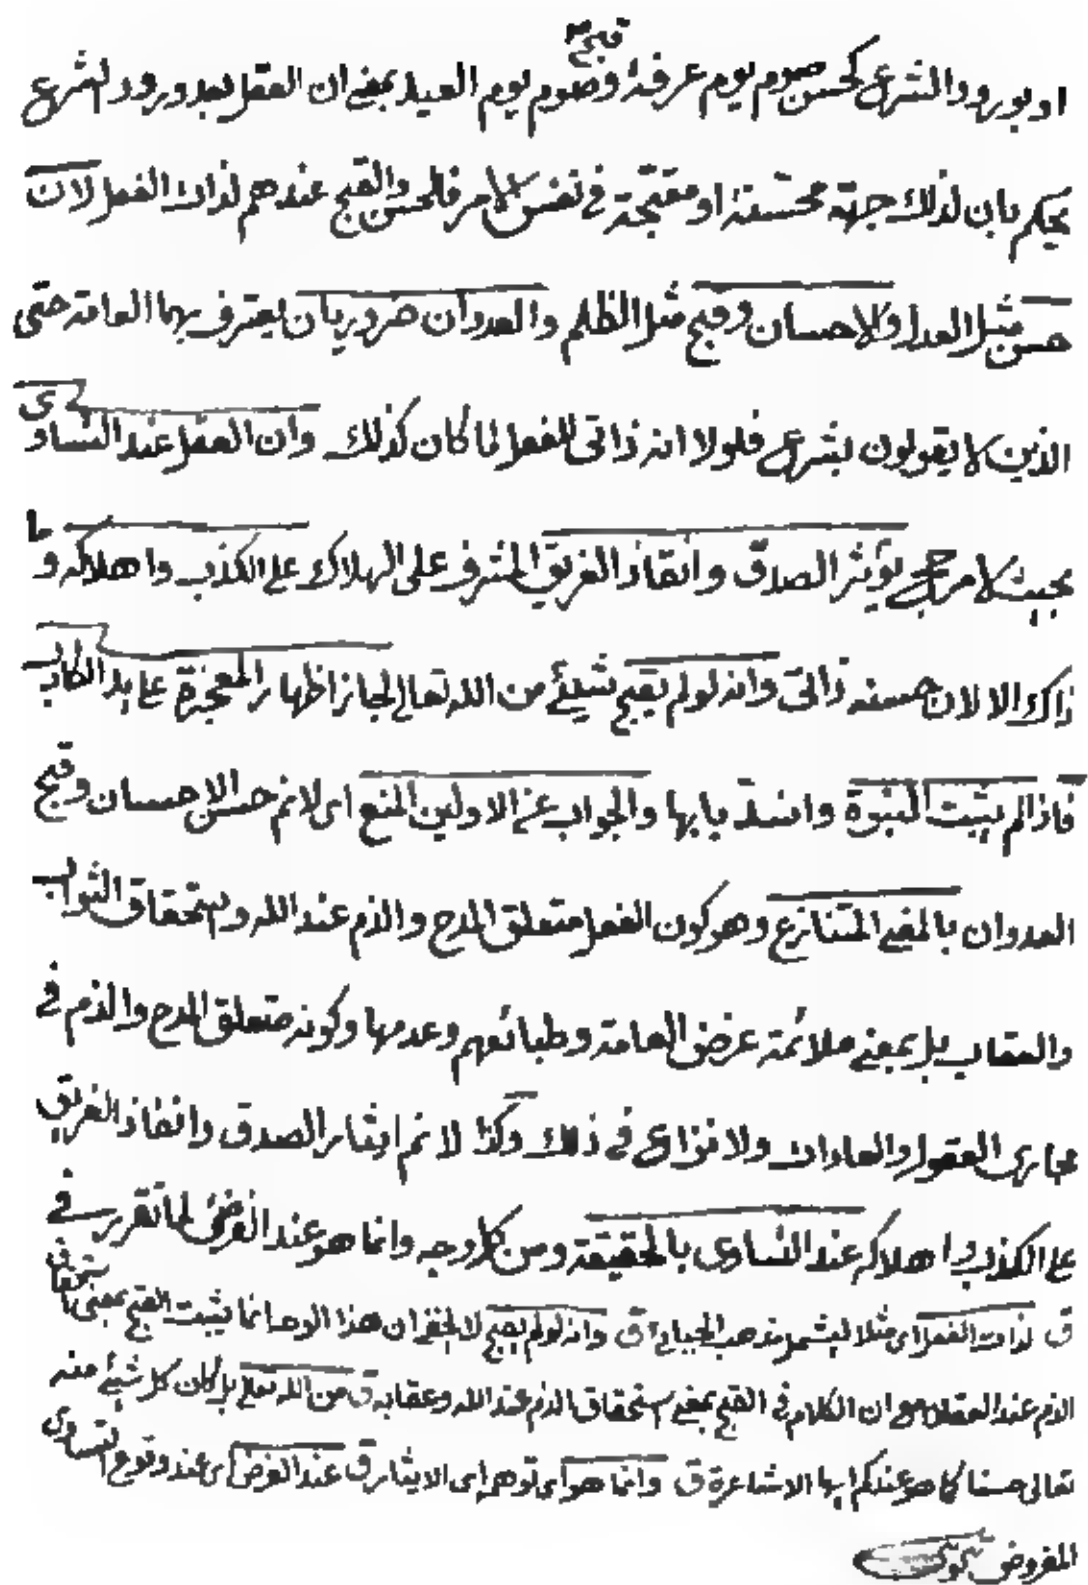 او بورود الشرع كحسن صوم يوم عرفة وقبح صوم يوم العيد بمعنى ان العقل بعد ورود الشرع
يحكم بان لذلك جهة محسنة او مقبحة في نفس الامر فالحسن والقبح عندهم لذات الفعل لان
حسن مثل العدل والاحسان وقبح مثل الظلم والعدوان ضروريان يعترف بهما العامة حتى
الذين لا يقولون بشرع فلولا انه ذاتى للفعل لما كان كذلك وان العقل عند التساوى
بحيث لا مرجح يؤثر الصدق وانقاذ الغريق المشرف على الهلاك على الكذب واهلاكه وما
ذاك الا لان حسنه ذاتى وانه لو لم يقبح شيئ من الله تعالى لجاز اظهار المعجزة على يد الكاذب
فاذا لم يثبت النبوة وانسد بابها والجواب عن الاولين المنع اى لانم حسن الاحسان وقبح
العدوان بالمعنى المتنازع وهو كون الفعل متعلق المدح والذم عند الله واستحقاق الثواب
والعقاب بل بمعنى ملائمة غرض العامة وطبائعهم وعدمها وكونه متعلق المدح والذم في
مجارى العقول والعادات ولا نزاع في ذلك وكذا لا نم ايثار الصدق وانقاذ الغريق
على الكذب واهلاكه عند التساوى بالحقيقة ومن كل وجه وانما هو عند الفرضى لما تقرر في
ق لذات الفعل اى مثلا ليشمل مذهب الجبائى ق وانه لو لم يقبح لا يخفى ان هذا الوجه انما يثبت القبح بمعنى استحقاق
الذم عند العقل مع ان الكلام في القبح بمعنى استحقاق الذم عند الله وعقابه ق من الله تعالى بل كان كل شيئ منه
تعالى حسنا كما هو عندكم ايها الاشاعرة ق وانما هو اى توهم اى الايثار ق عند الفرض اى عند وقوع التساوى
المفروض